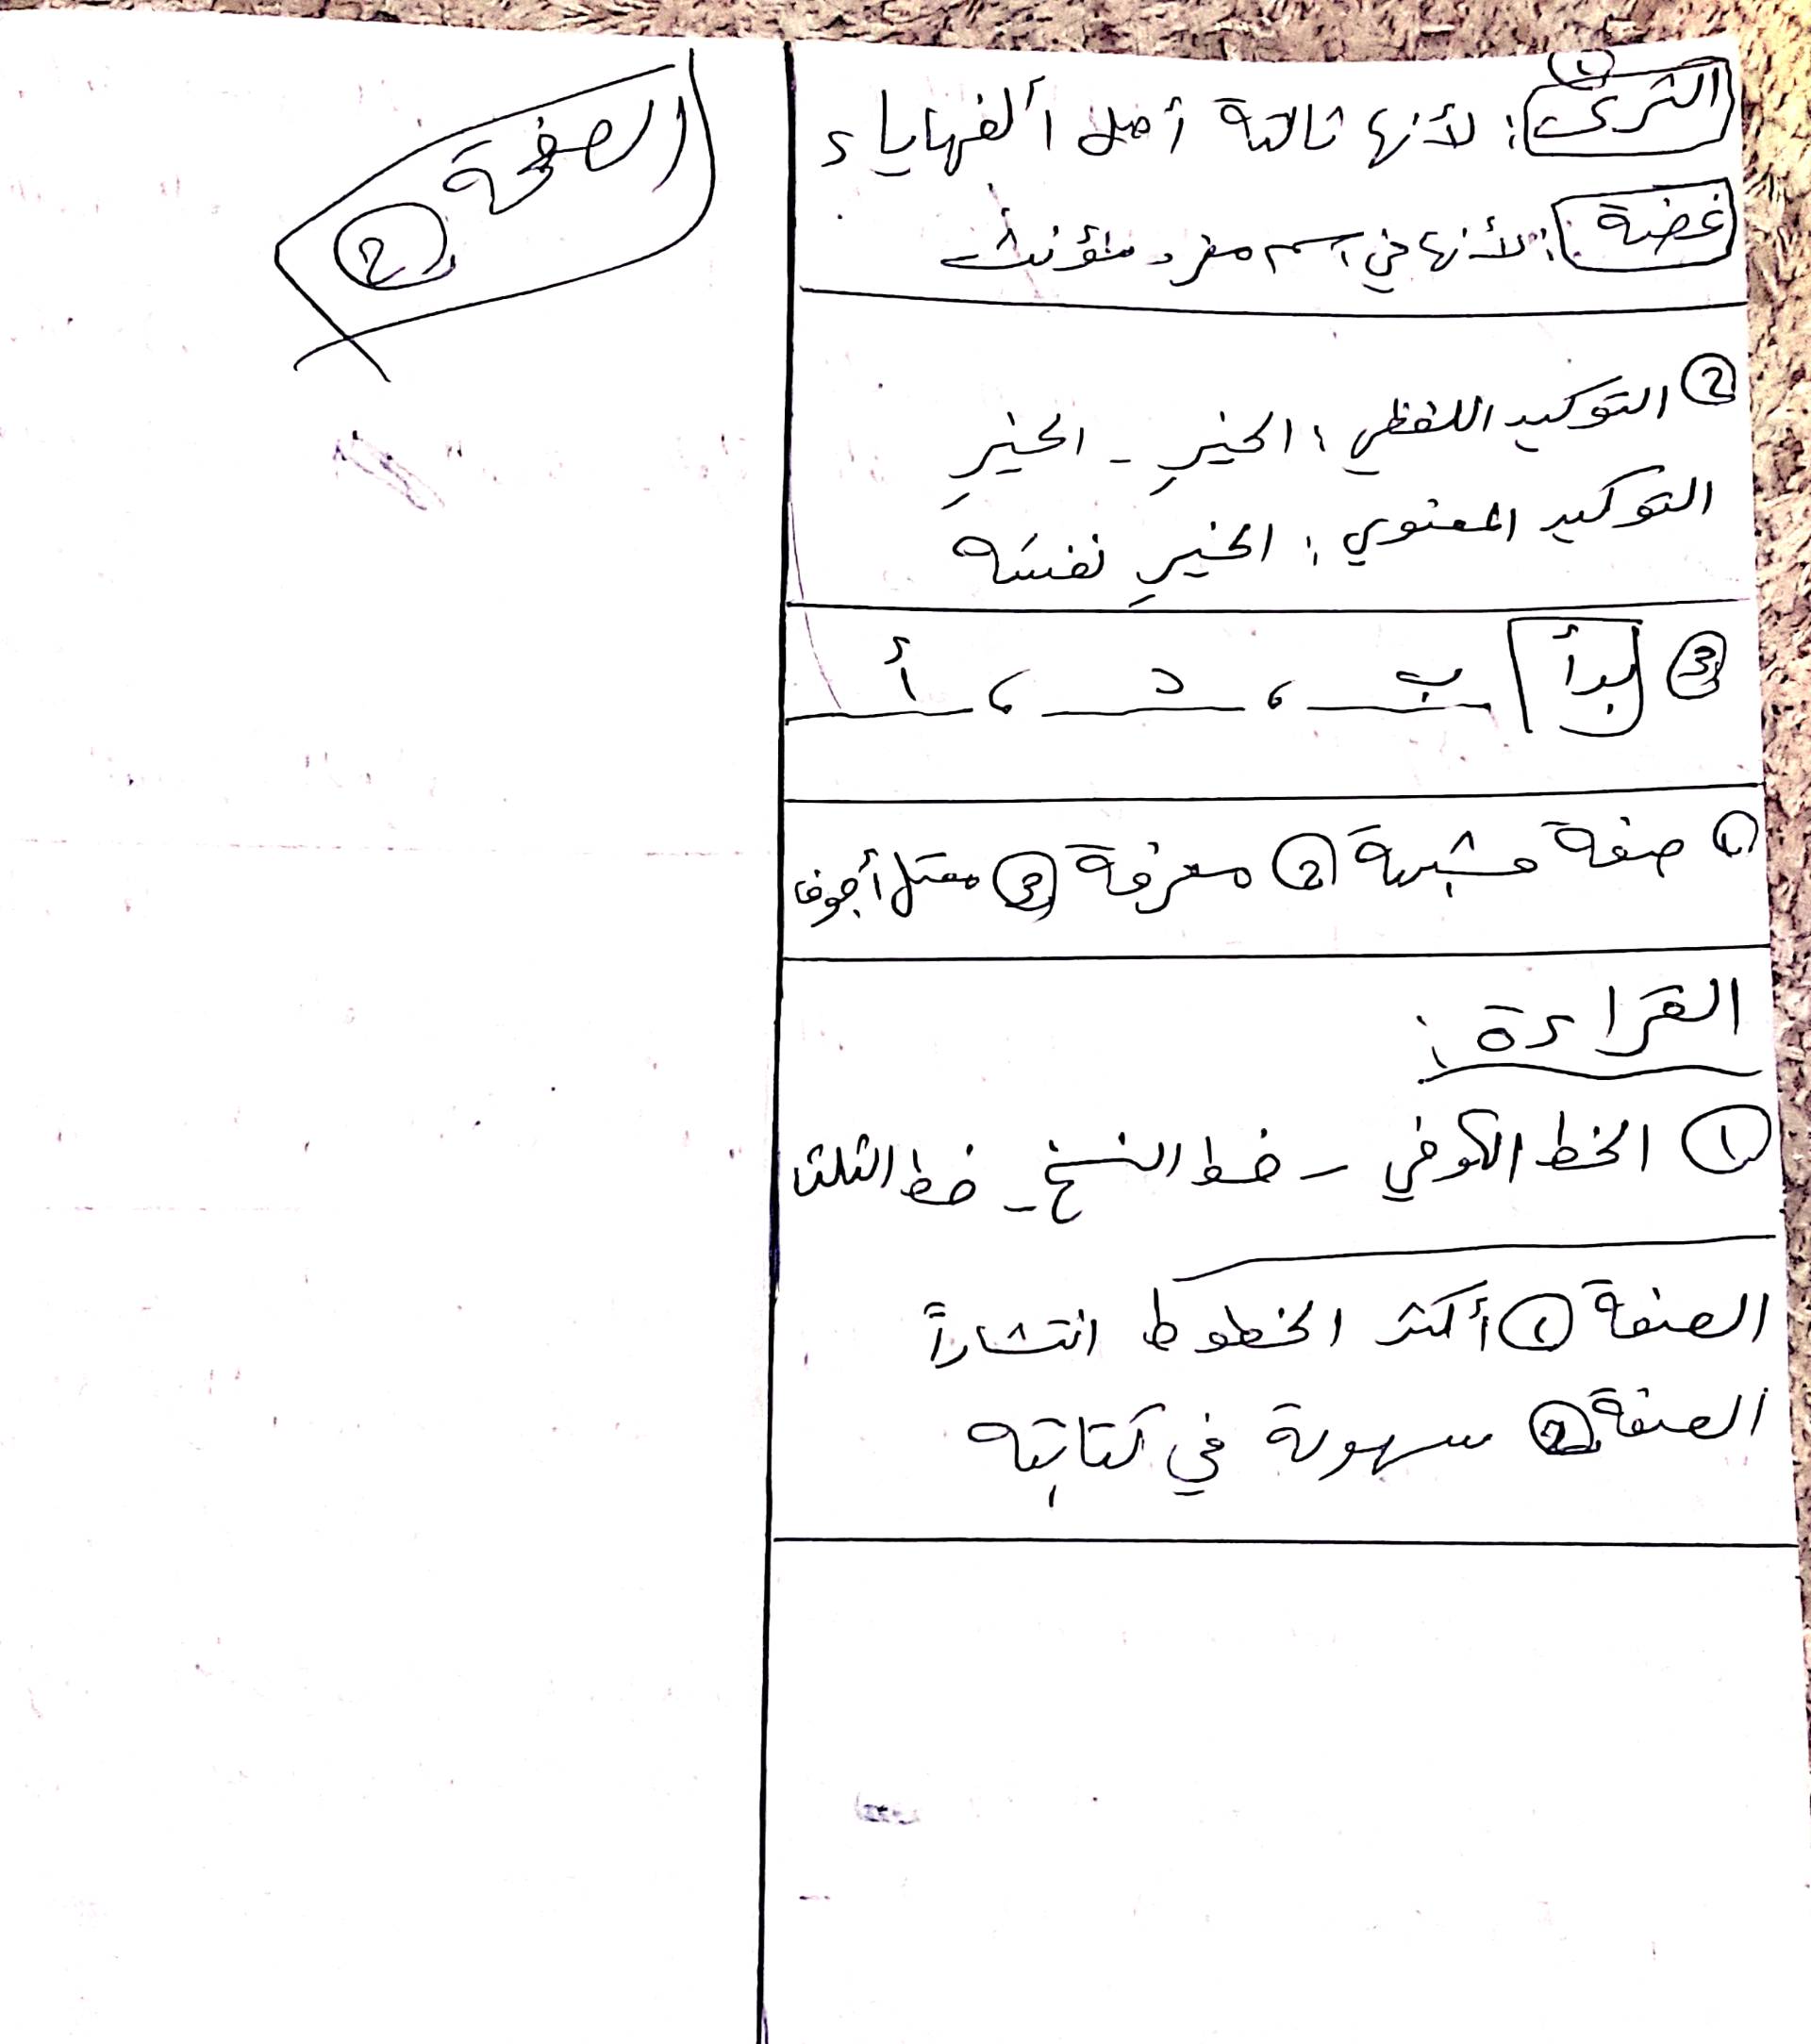 الصفحة 2
1
الثرى : لأنها ثالثة أصل ألفها ياء
غضة : لأنها في اسم مفرد مؤنث
2 التوكيد اللفظي : الخيرِ - الخيرِ
التوكيد المعنوي : الخيرِ نفسَه
3 بدأ ب ، د ، أ
1 صفة مشبهة 2 معرفة 3 معتل أجوف
القراءة :
1 الخط الكوفي - خط النسخ - خط الثلث
الصفة 1 أكثر الخطوط انتشاراً
الصفة 2 سهولة في كتابته